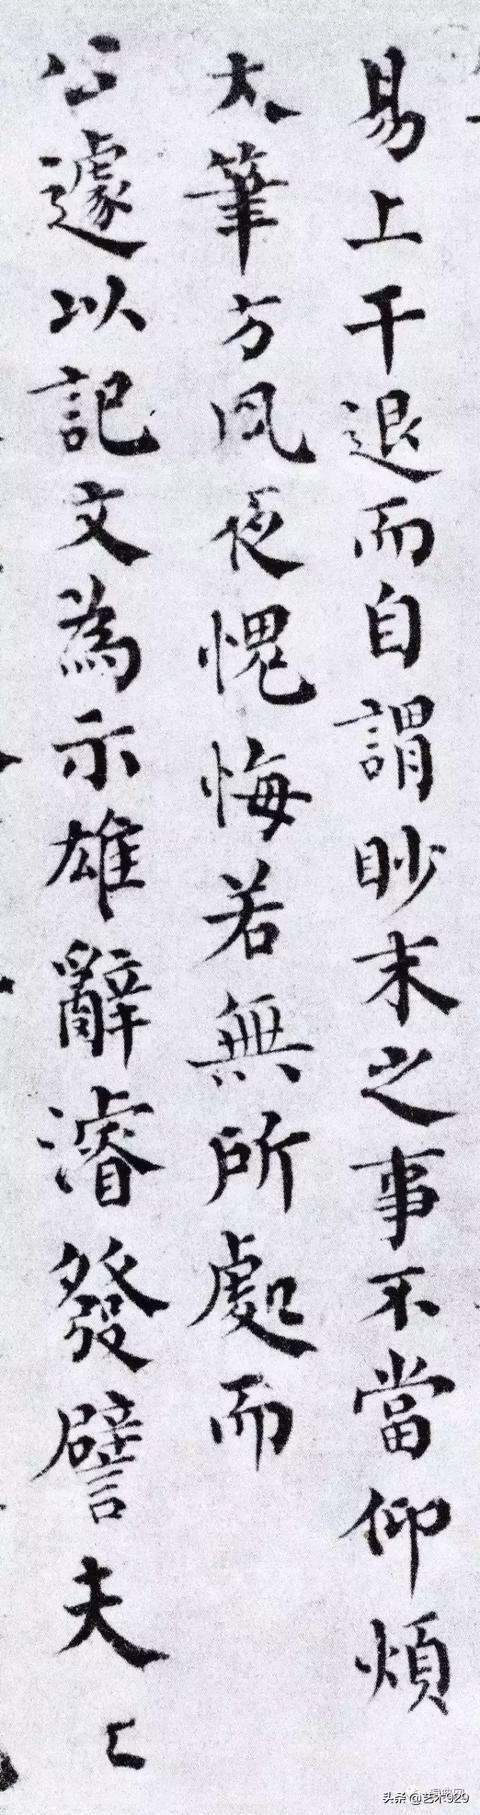 易上干退而自謂眇末之事不當仰煩
大筆方夙夜愧悔若無所處而
公遽以記文為示雄辭濬發譬夫
头条@艺术929